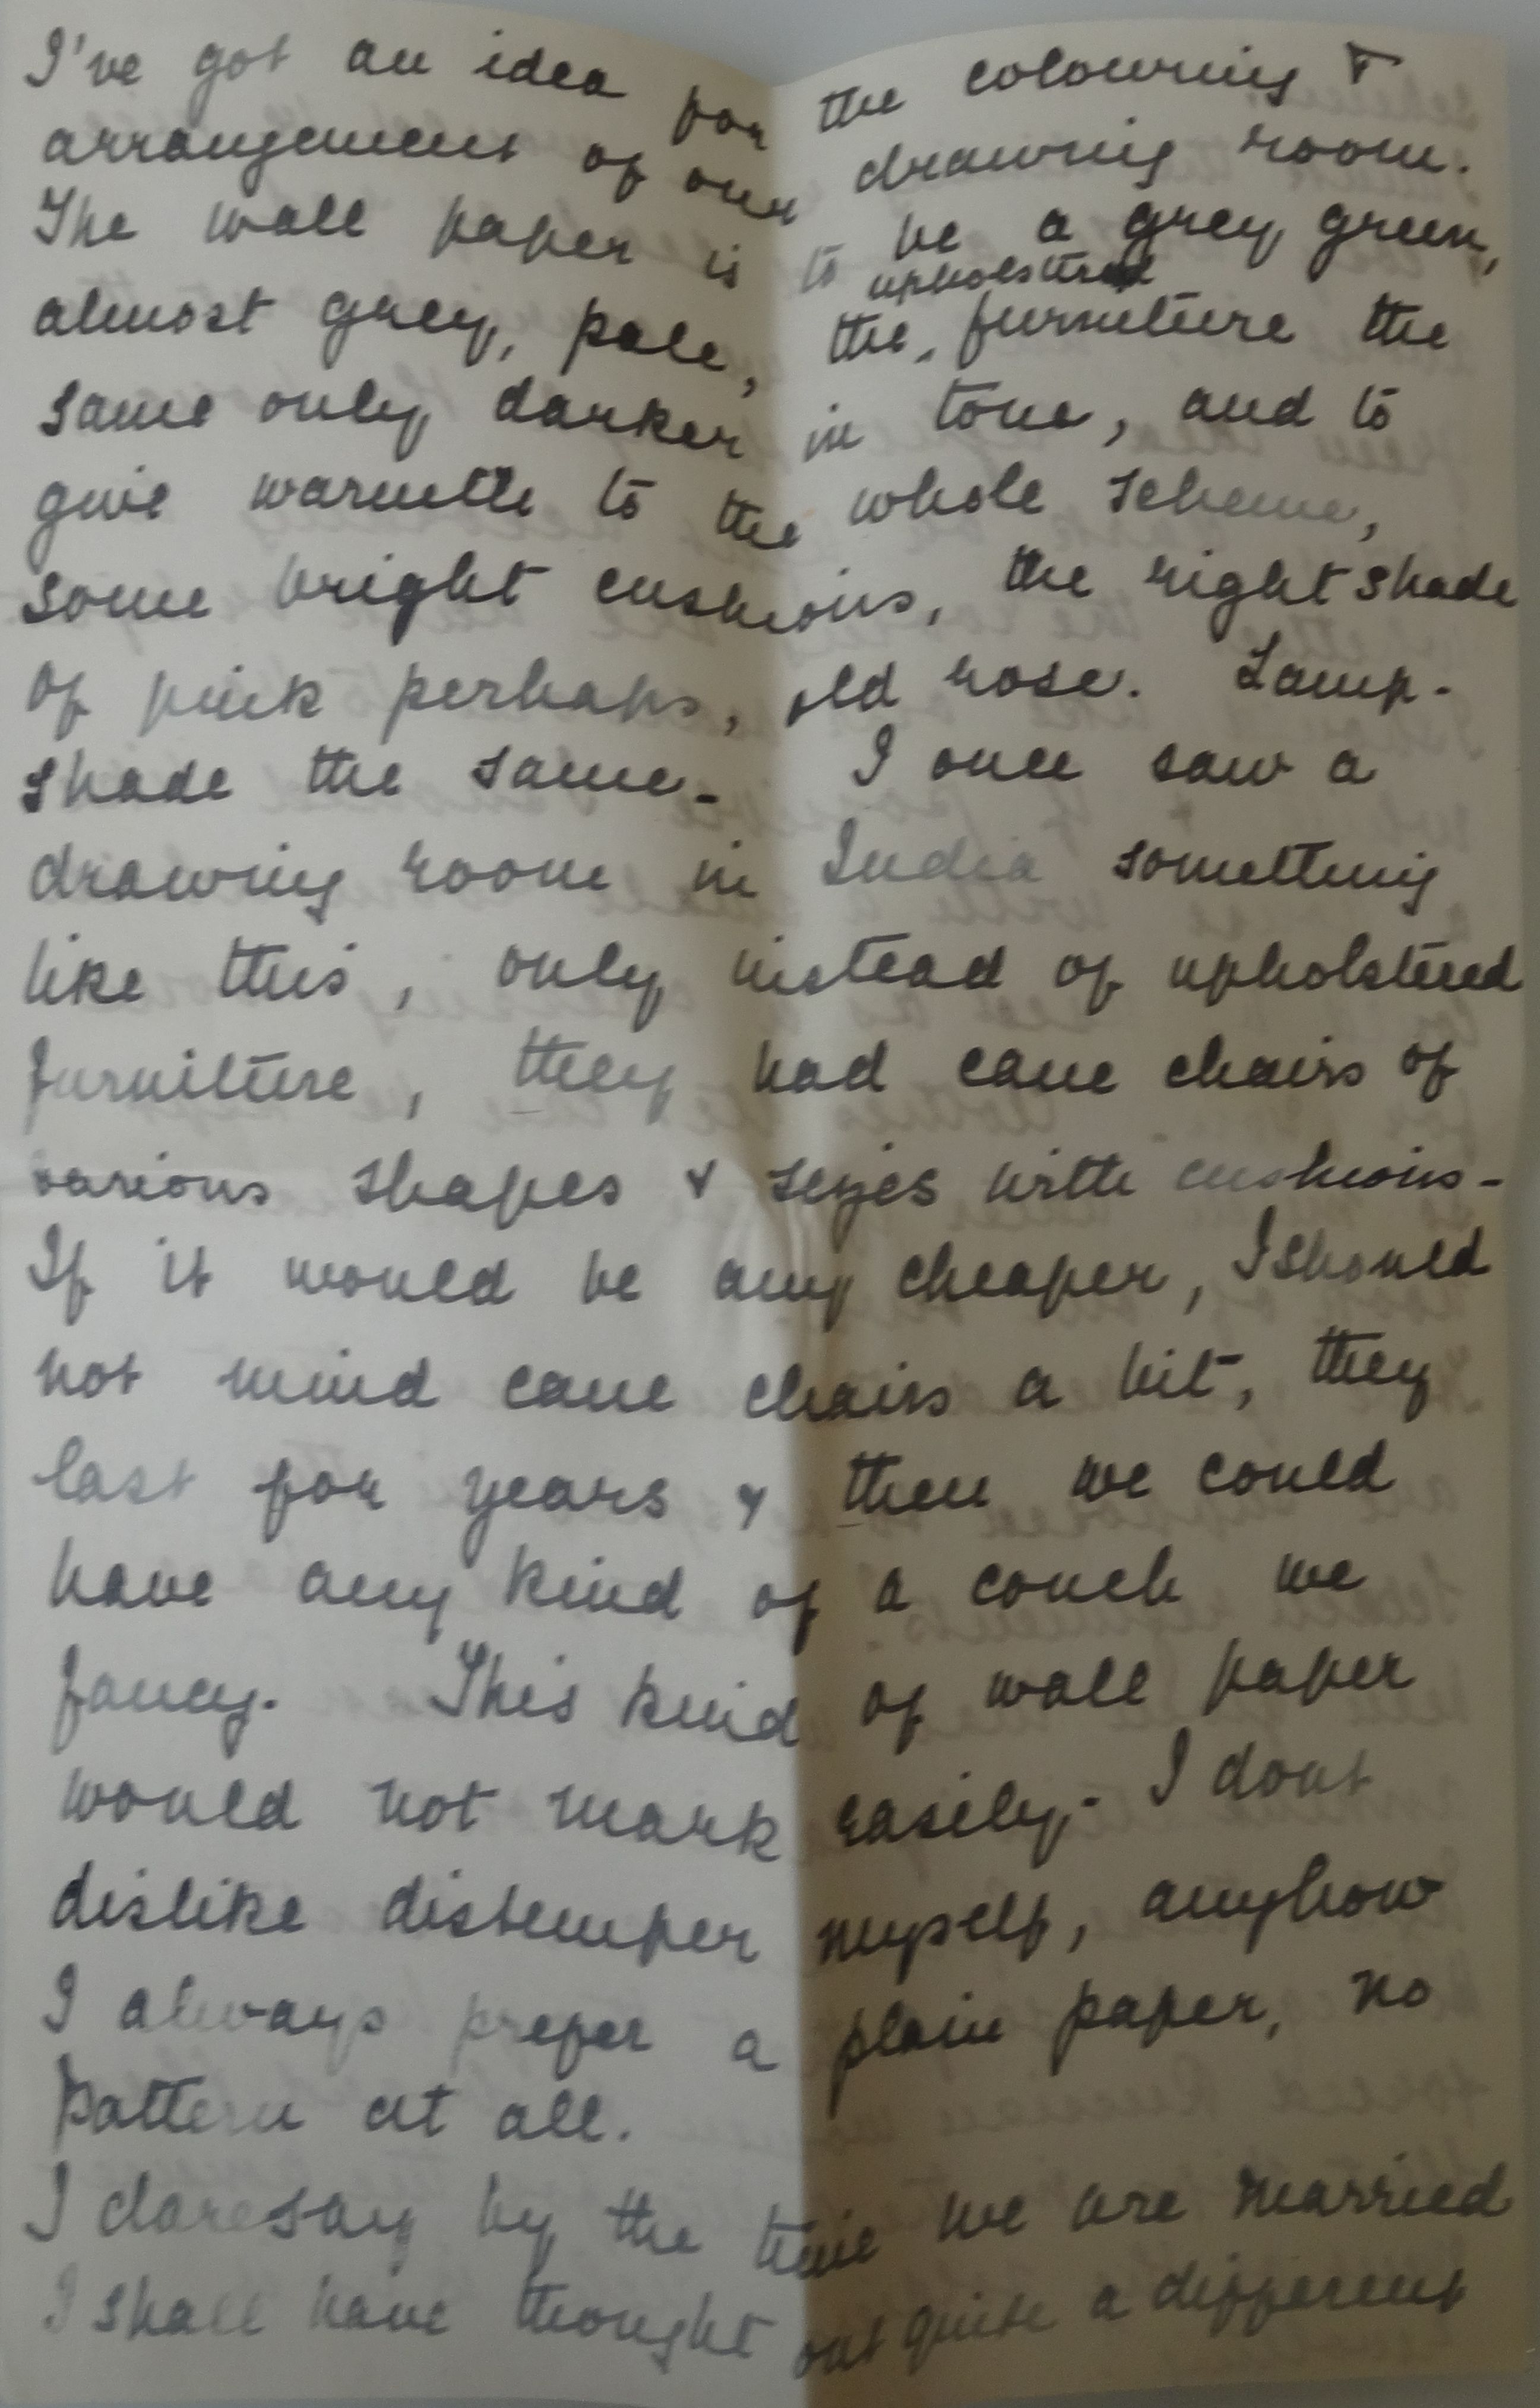 I've got an idea for the colouring &
arrangement of our drawing room.
The wall paper is to be a grey green,
upholstered
almost grey, pale, the furniture the
same only darker in tone, and to
give warmth to the whole scheme,
some bright cushions, the right shade
of pink perhaps, old rose. Lamp-
shade the same - I once saw a
drawing room in India something
like this, only instead of upholstered
furniture, they had cane chairs of
various shapes & sizes with cushions -
If it would be any cheaper, I should
not mind cane chairs a bit, they
last for years & then we could
have any kind of a couch we
fancy. This kind of wall paper
would not mark easily - I dont
dislike distemper myself, anyhow
I always prefer a plain paper, no
pattern at all.
I daresay by the time we are married
I shall have thought out quite a different